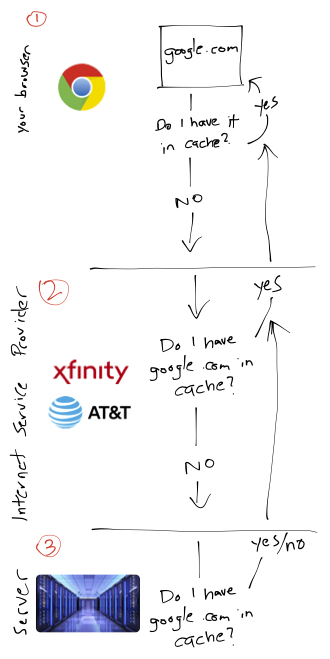 1
your browser
google.com
yes
Do I have it
in cache?
NO
2
Internet Service Provider
yes
Do I have
google.com in
cache?
xfinity
AT&T
NO
3
Server
yes/no
Do I have
google.com in
cache?